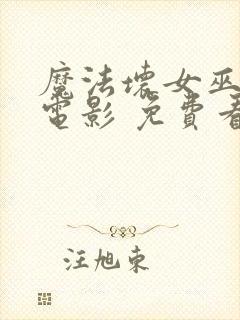 魔法壞女巫
電影 免費看
汪旭東